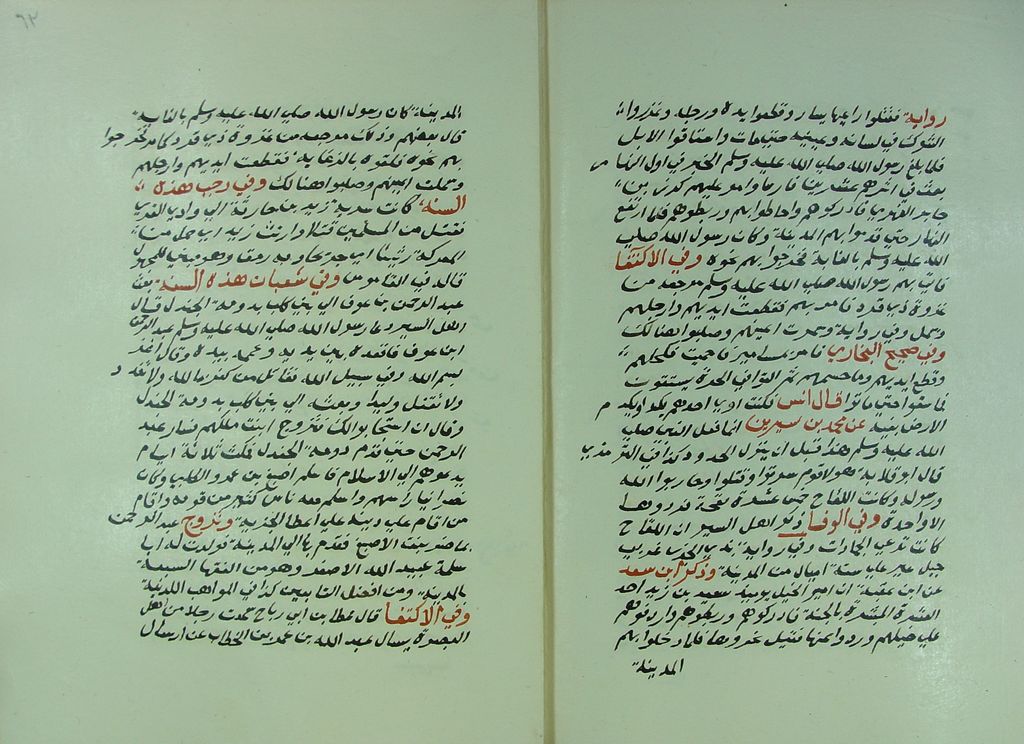 رواية فقتلوا راعيها يسار وقطعوا يده ورجله وغرزوا
الشوك في لسانه وعينيه حتى مات واستاقوا الابل
فلما بلغ رسول الله صلى الله عليه وسلم الخبر في اول النهار
بعث في اثرهم عشرين فارسا وامر عليهم كرز بن
جابر الفهري فادركوهم واحاطوا بهم وربطوهم فلما ارتفع
النهار حتى قدموا بهم المدينة وكان رسول الله صلى
الله عليه وسلم بالغابة فخرجوا بهم نحوه وفي الاكتفا
فاتى بهم رسول الله صلى الله عليه وسلم مرجعه من
غزوة ذي قرد فامر بهم فقطعت ايديهم وارجلهم
وسمل وفي رواية وسمرت اعينهم وصلبوا هنالك
وفي صحيح البخاري فامر بمسامير فاحميت فكحلهم
وقطع ايديهم وما حسمهم ثم القوا في الحرة يستقون
فما سقوا حتى ماتوا قال انس فكنت ارى احدهم يكد او يكدم
الارض بفيه عن محمد بن سيرين انما فعل النبي صلى
الله عليه وسلم هذا قبل ان ينزل الحدود وكذا في الترمذي
قال ابو قلابة هولا قوم سرقوا وقتلوا وحاربوا الله
ورسوله وكانت اللقاح خمس عشرة لقحة فردوها
الا واحدة وفي الوفا ذكر اهل السير ان اللقاح
كانت ترعى الجمارات وفي رواية بذي الجدر غربي
جبل عير على ستة اميال من المدينة وذكر ابن سعد
عن ابن عقبة ان امير الخيل يوميذ سعيد بن زيد احد
العشرة المبشرة بالجنة فادركوهم وربطوهم واردفوهم
على خيلهم وردوا عنها فلما دخلوا بهم
المدينة
٦٢
المدينة كان رسول الله صلى الله عليه وسلم بالغابة
قال بعضهم وذكان مرجعه من غزوة ذي قرد كما مر فخرجوا
بهم نحوه فلقوه بالزغابة فقطعت ايديهم وارجلهم
وسملت اعينهم وصلبوا هنالك وفي رجب هذه
السنة كانت سرية زيد بن حارثة الى وادي القرى
فقتل من المسلمين قتلا وارتث زيد اي حمل من
المعركة رثيثا اي جريحا وبه رمق وهو مبني للمجهول
قاله في القاموس وفي شعبان هذه السنة بعث
عبد الرحمن بن عوف الى بني كلب بدومة الجندل قال
اهل السير دعا رسول الله صلى الله عليه وسلم عبد الرحمن
ابن عوف فاقعده بين يديه وعممه بيده وقال اغز
بسم الله وفي سبيل الله فقاتل من كفر بالله ولا تغدر
ولا تقتل وليدا وبعثه الى بني كلب بدومة الجندل
وقال ان استجابوا لك فتزوج ابنت ملكهم فسار عبد
الرحمن حتى قدم دومة الجندل فمكث ثلاثة ايام
يدعوهم الى الاسلام فاسلم اصبغ بن عمرو الكلبي وكان
نصرانيا راسهم واسلم معه ناس كثير من قومه واقام
من اقام على دينه على اعطا الجزية وتزوج عبد الرحمن
تماضر بنت الاصبغ فقدم بها الى المدينة فولدت له ابا
سلمة عبد الله الاصغر وهو من الفقها السبعة
بالمدينة ومن افضل التابعين كذا في المواهب اللدنية
وفي الاكتفا قال عطا بن ابي رباح سمعت رجلا من اهل
البصرة يسال عبد الله بن عمر بن الخطاب عن ارسال